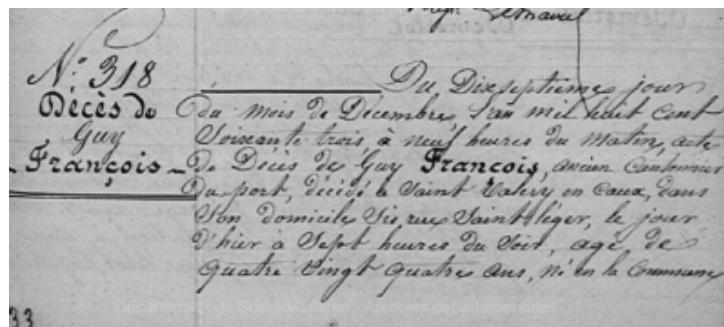 N° 318
Décès de
Guy
François
Du Dixseptieme jour
du mois de Décembre, l'an mil huit cent
Soixante trois, à neuf heures du matin, acte
de Décès de Guy François, ancien Cantonnier
du port, décédé à Saint Valery en Caux, dans
son domicile Sis, rue Saint léger, le jour
d'hier à Sept heures du Soir, agé de
quatre Vingt quatre ans, né en la Commune
33